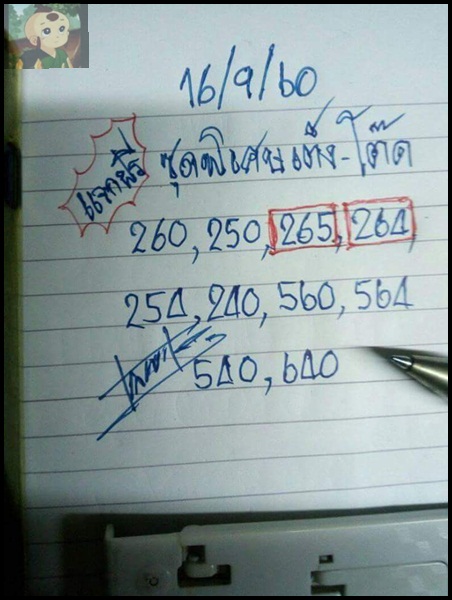 16/9/60
แจกฟรี
ชุดพิเศษเต็ง-โต๊ด
260, 250, 265, 264,
254, 240, 560, 564
540, 640